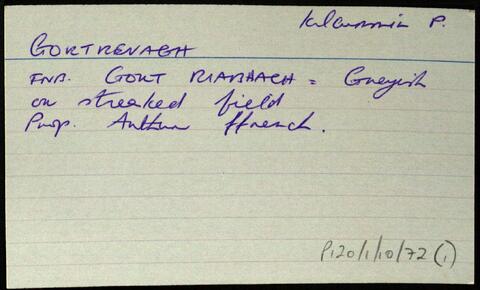 Kilcummin P.
GORTREVAGH
FNR. GORT RIABHACH = Greyish
or streaked field
Prop. Arthur ffrench.
P120/1/10/72 (1)